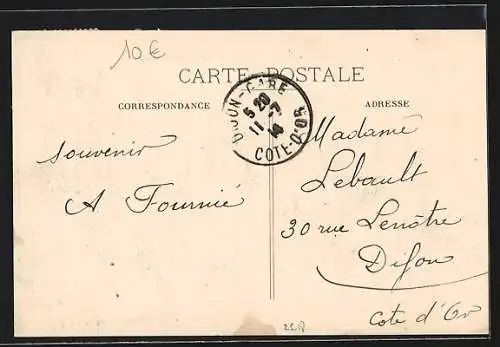 10 €
CARTE POSTALE
CORRESPONDANCE
ADRESSE
DIJON-GARE
5 20
11-7
14
COTE-D'OR
souvenir
A Fournié
Madame
Lebault
30 rue Lenôtre
Dijon
Cote d'Or